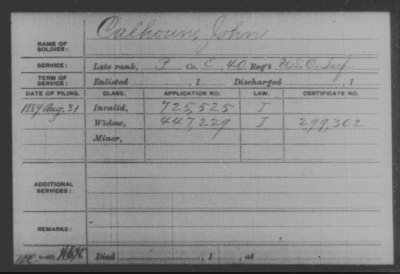 Calhoun, John
NAME OF SOLDIER:
SERVICE: Late rank, P Co. E, 40 Reg't U.S.C. Inf
TERM OF SERVICE: Enlisted , 1 Discharged , 1
DATE OF FILING. CLASS. APPLICATION NO. LAW. CERTIFICATE NO.
1889 Aug. 31 Invalid, 725,525 J
Widow, 447,229 J 299,302
Minor,
ADDITIONAL SERVICES:
REMARKS:
Died , 1 , at